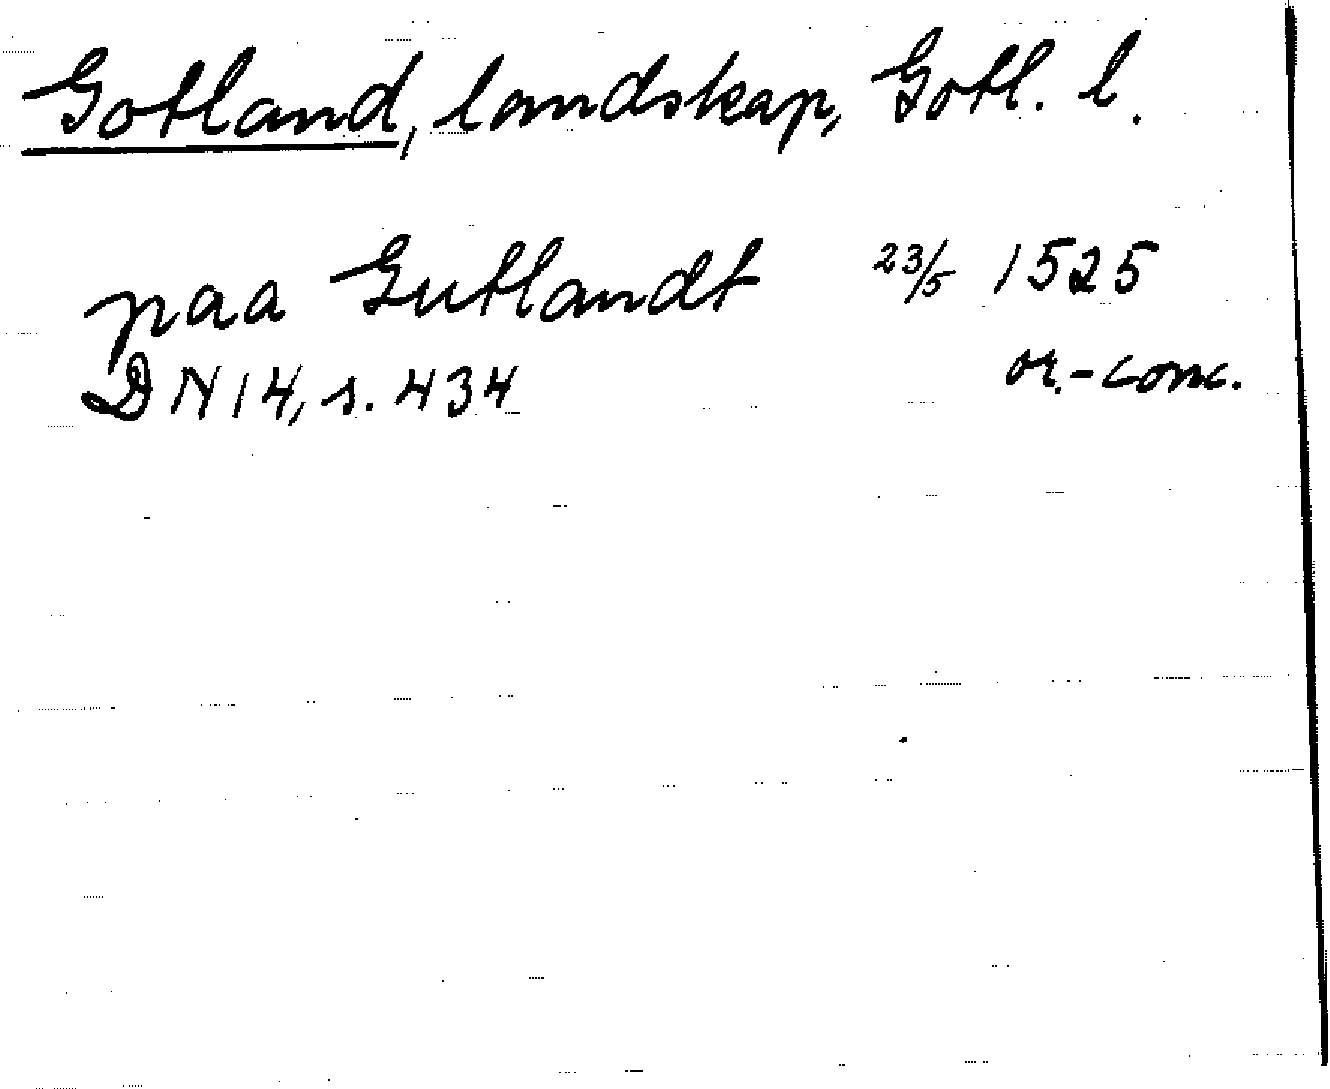 Gotland, landskap, Gotl. l.
paa Gutlandt 23/5 1525
DN 14, s. 434 or.-conc.